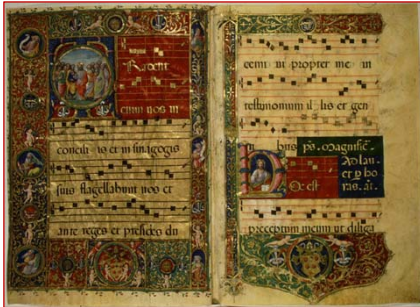 Tradent
enim vos in
concili is et in sinagogis
suis flagellabunt vos et
ante reges et presides du
cemi ni propter me in
testimonium il lis et gen
ti bus ps. Magnific.
Ad lau.
et p ho
ras. añ.
Oc est
preceptum meum ut diliga